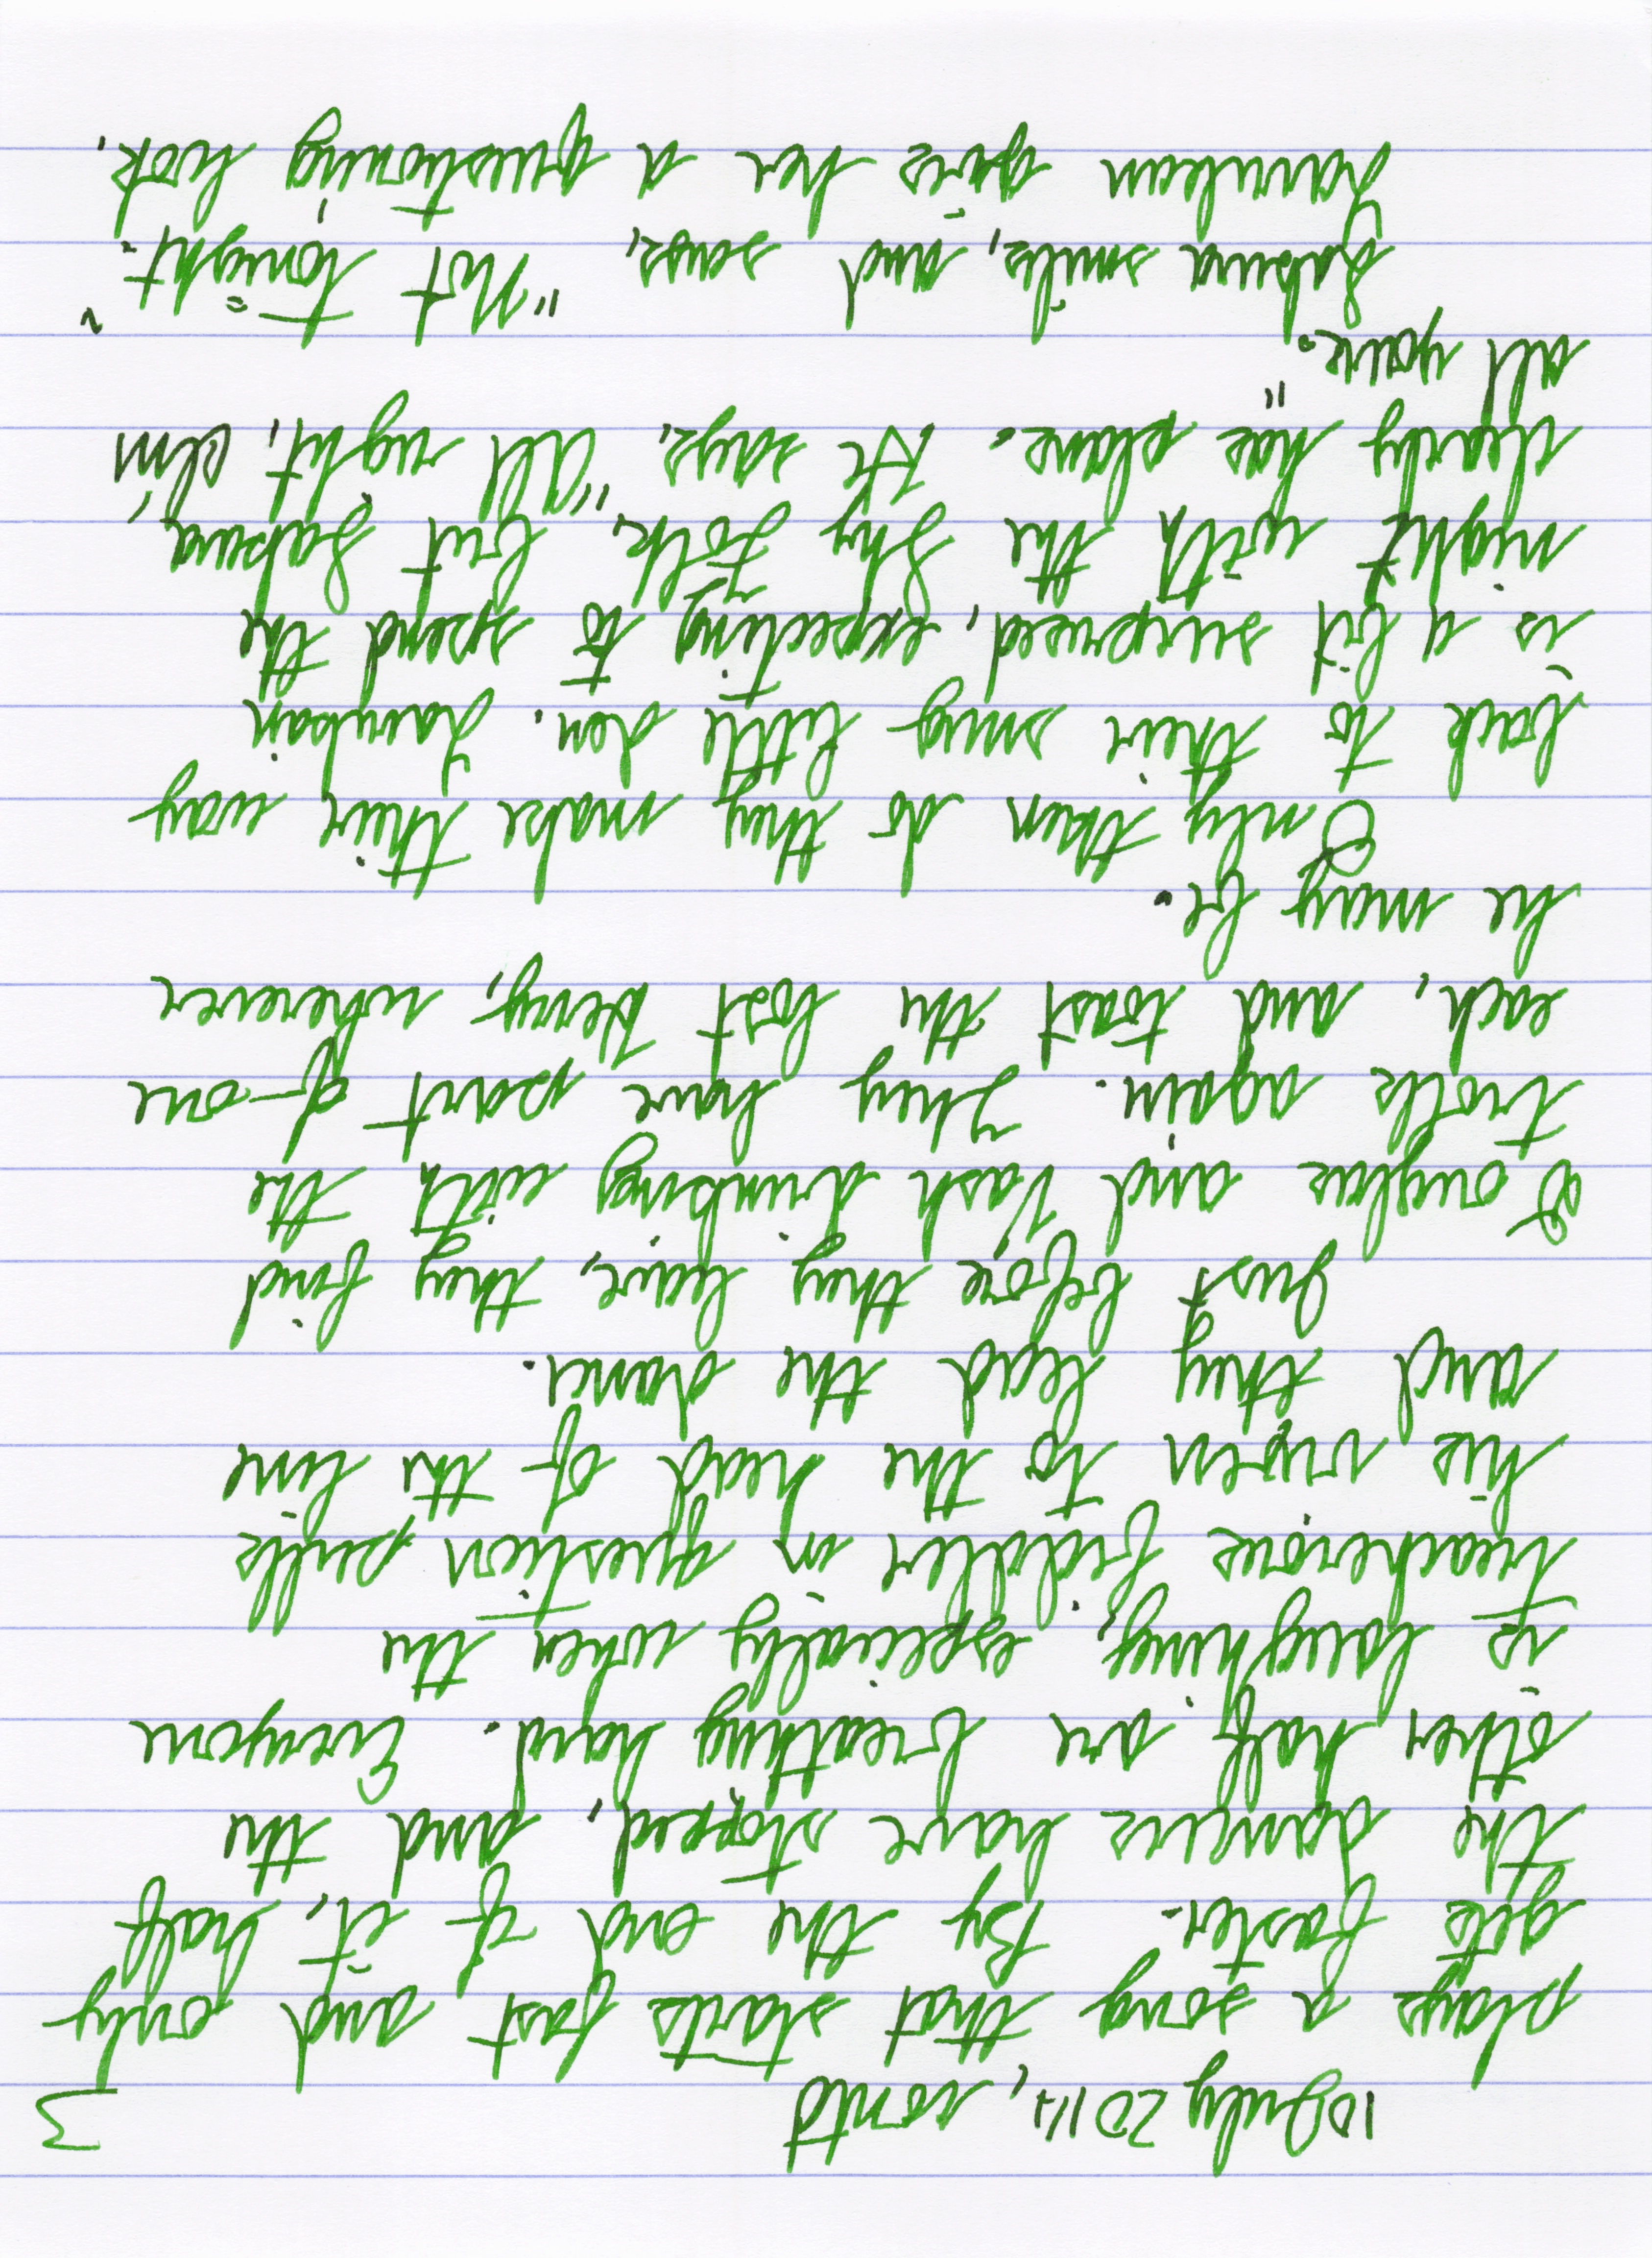 10 July 2014, cont'd 3
plays a song that starts fast and only
gets faster. By the end of it, half
the dancers have stopped, and the
other half are breathing hard. Everyone
is laughing, especially when the
treacherous fiddler in question pulls
his vixen to the head of the line
and they lead the dance.
Just before they leave, they find
Douglas and Vash drinking with the
trolls again. They have part of one
each, and toast the lost Kerry, wherever
he may be.
Only then do they make their way
back to their snug little den.
is a bit surprised, expecting to spend the
night with the Shy Folk, but Sakura
clearly has plans. He says, "All right, I'm
all yours."
Sakura smiles, and says, "Not tonight."
gives her a questioning look.